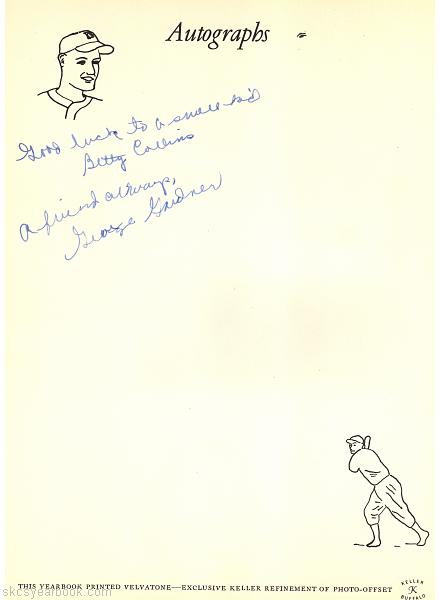 Autographs
B
Good luck to a small kid
Betty Collins
A friend always,
George Gardner
THIS YEARBOOK PRINTED VELVATONE—EXCLUSIVE KELLER REFINEMENT OF PHOTO-OFFSET
KELLER
K
BUFFALO
skcsyearbook.com